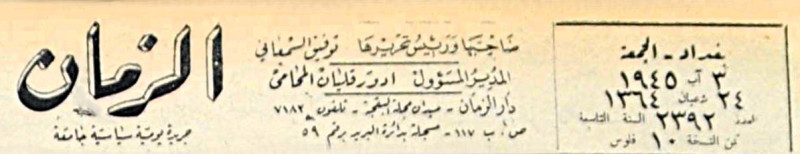 بغداد - الجمعة
٣ آب ١٩٤٥
٢٤ شعبان ١٣٦٤
العدد ٢٣٩٢ السنة التاسعة
ثمن النسخة ١٠ فلوس
صاحبها ورئيس تحريرها توفيق السمعاني
المدير المسؤول ادور قليان المحامي
دار الزمان - ميدان محلة - تلفون ٧١٨٢
ص. ب ١١٧ - مسجلة بدائرة البريد برقم ٥٩
الزمان
جريدة يومية سياسية جامعة